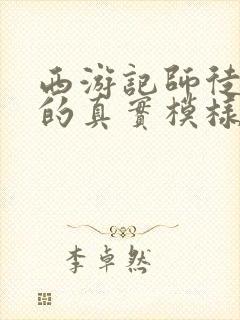 西游記師徒
的真實模樣
李卓然